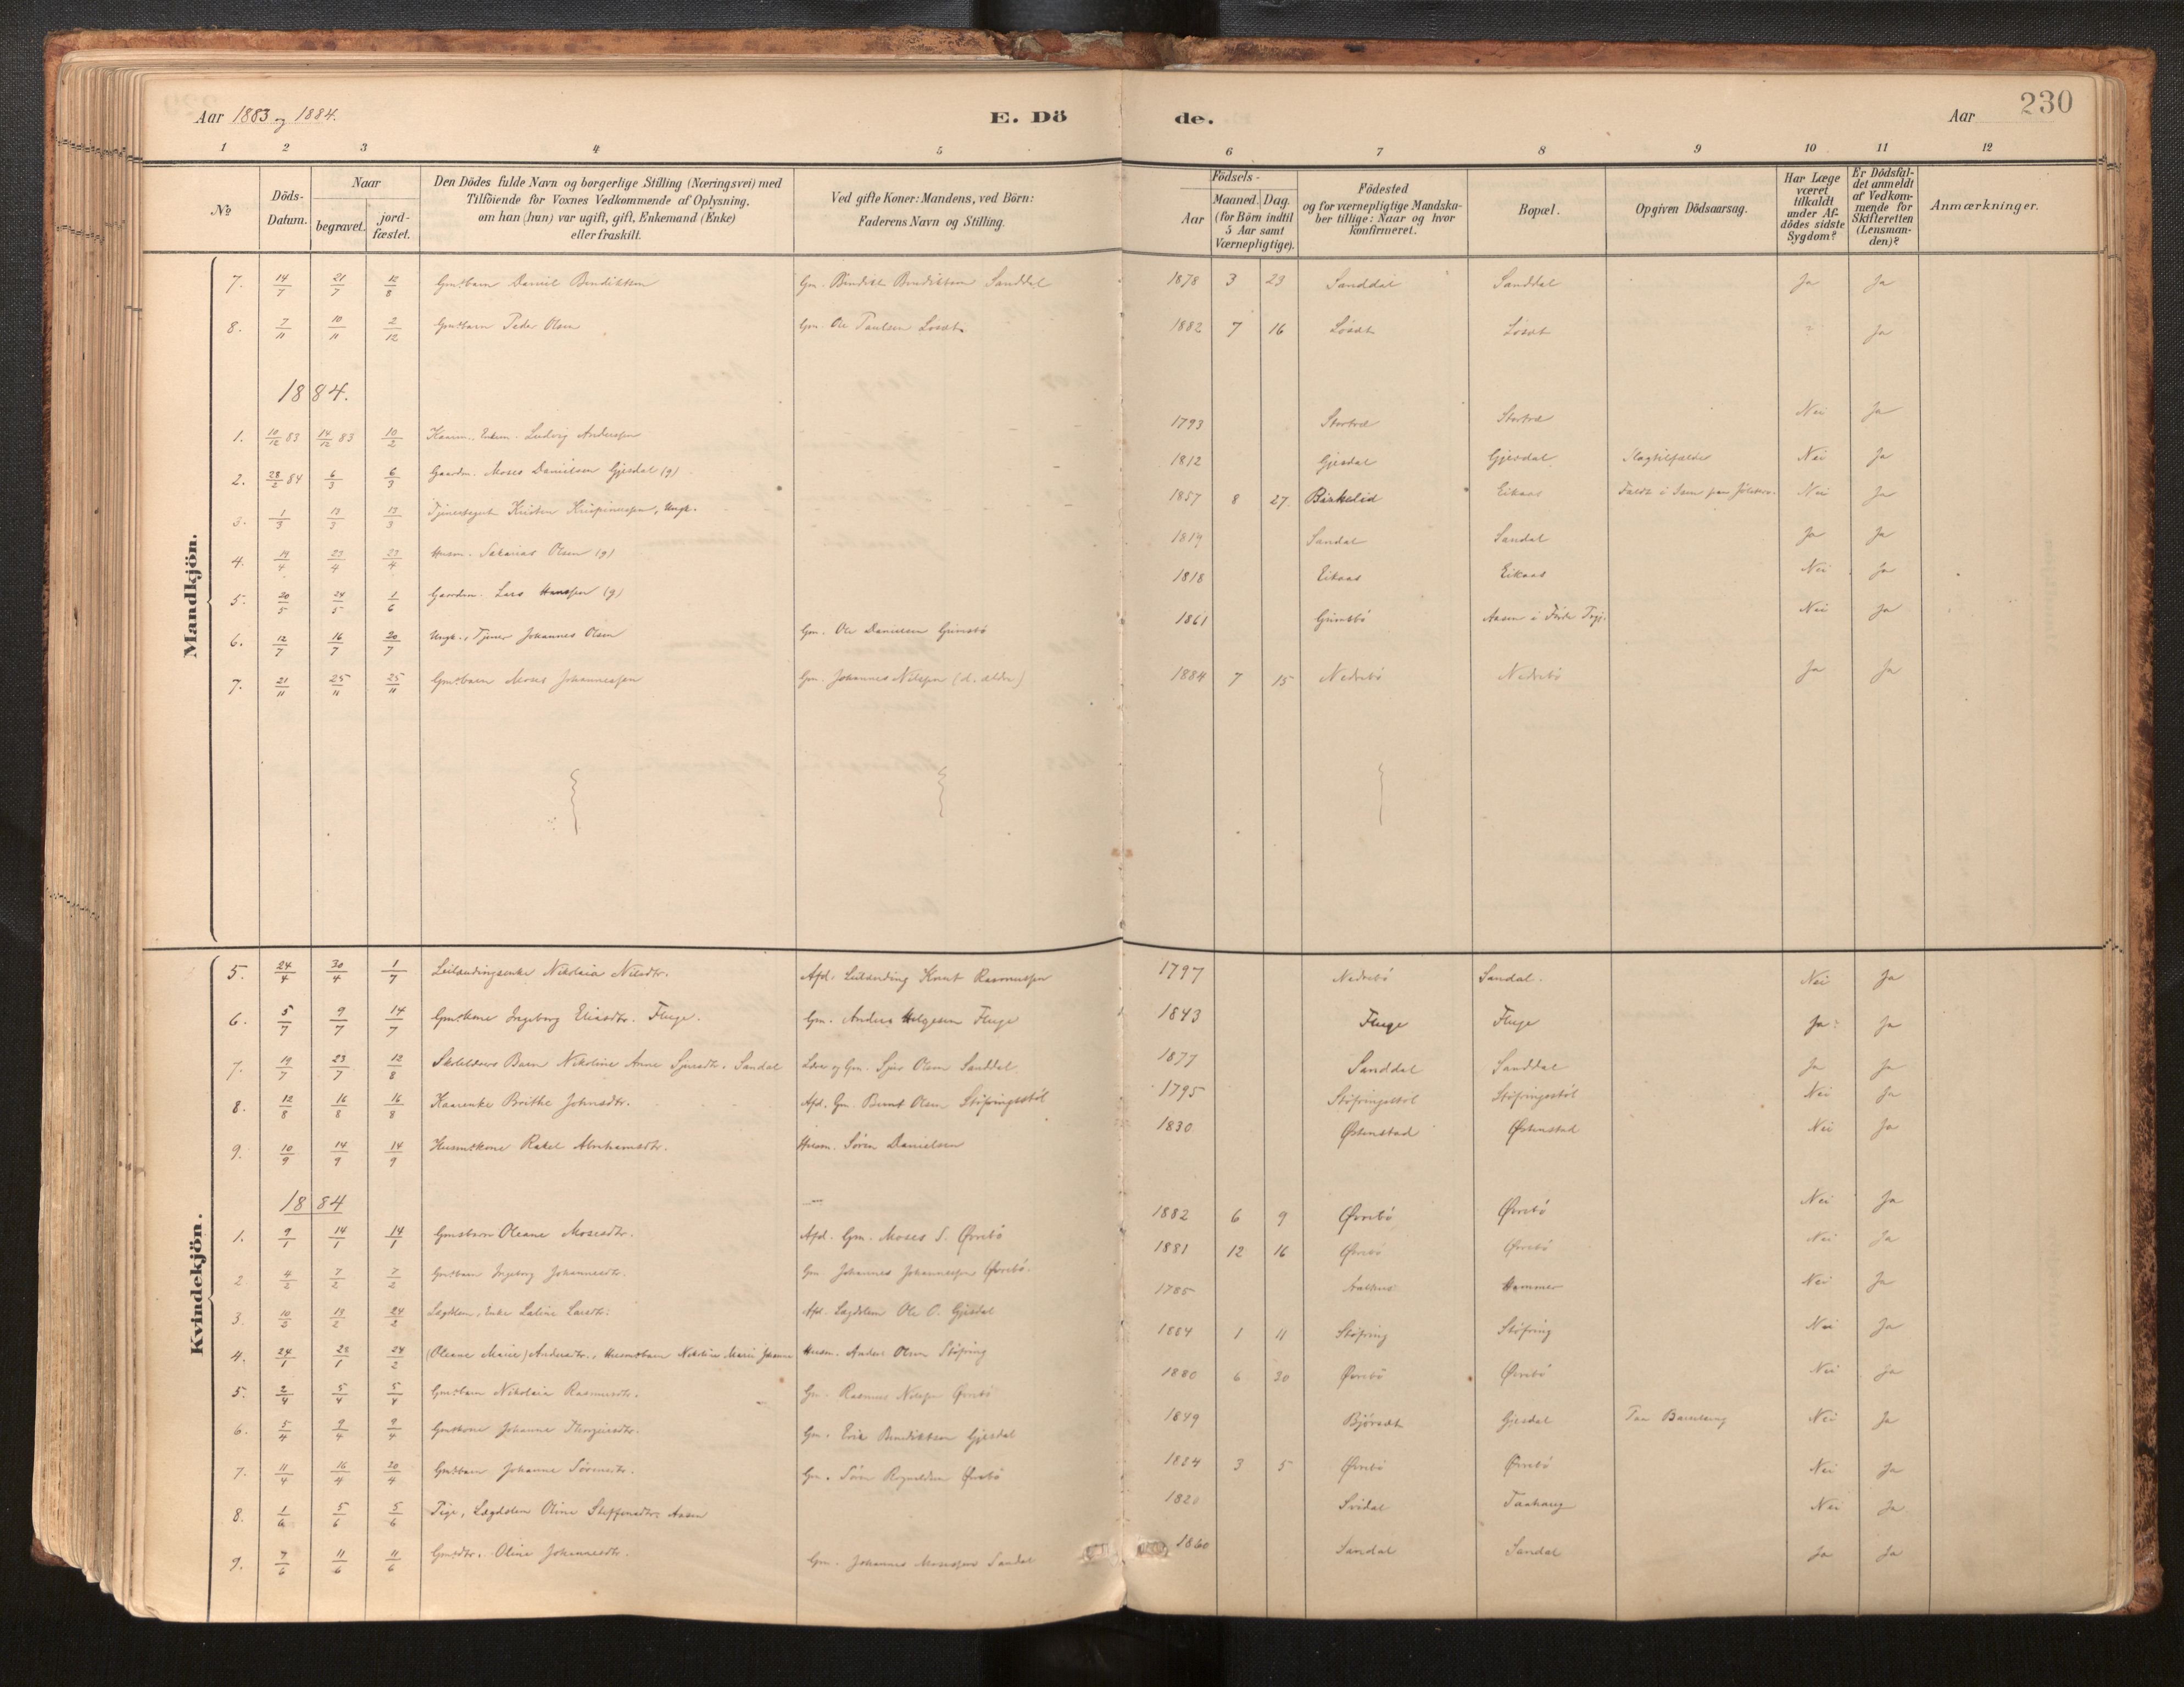 Aar 1883 og 1884. E. Dö de. Aar 230
1 2 3 4 5 6 7 8 9 10 11 12
No Döds-Datum. Naar begravet. jord-fæstet. Den Dödes fulde Navn og borgerlige Stilling (Næringsvei) med Tilföiende for Voxnes Vedkommende af Oplysning, om han (hun) var ugift, gift, Enkemand (Enke) eller fraskilt. Ved gifte Koner: Mandens, ved Börn: Faderens Navn og Stilling. Födsels- Aar Maaned. Dag. (for Börn indtil 5 Aar samt Værnepligtige). Födested og for værnepligtige Mandskaber tillige: Naar og hvor Konfirmeret. Bopæl. Opgiven Dödsaarsag. Har Læge været tilkaldt under Afdödes sidste Sygdom? Er Dödsfaldet anmeldt af Vedkommende for Skifteretten (Lensmanden)? Anmærkninger.
Mandkjön.
7. 14/7 21/7 12/8 Gmsbarn Daniel Bendiktsen Gm. Bendikt Bendiktsen Sanddal 1878 3 23 Sanddal Sanddal Ja Ja
8. 7/11 10/11 2/12 Gmsbarn Peder Olsen Gm. Ole Paulsen Løsæt 1882 7 16 Løsæt Løsæt Ja
1884.
1. 10/12 83 14/12 83 10/2 Ludvig Anderssen 1793 Nei Ja
2. 28/2 84 6/3 6/3 Gaardm. Moses Danielsen Gjesdal (g) 1812 Gjesdal Gjesdal Slagtilfælde Nei Ja
3. 1/3 13/3 13/3 1857 8 27 Birkelid Eikaas Nei Ja
4. 19/4 23/4 23/4 Husm. Sakarias Olsen (g) 1819 Sandal Sandal Ja Ja
5. 20/5 24/5 1/6 Gaardm. Lars Hanssen (g) 1818 Eikaas Eikaas Nei Ja
6. 12/7 16/7 20/7 Ungk., Tjener Johannes Olsen Gm. Ole Danielsen Grimsbø 1861 Grimsbø Aasen i Førde Prgj. Nei Ja
7. 21/11 25/11 25/11 Gmsbarn Moses Johannessen Gm. Johannes Nilssen (d. ældre) 1884 7 15 Nedrebø Nedrebø Ja Ja
Kvindekjön.
5. 24/4 30/4 1/7 Leilændingsenke Nikolaia Nilsdtr. Afd. Leilænding Knut Rasmussen 1797 Nedrebø Sandal. Nei Ja
6. 5/7 9/7 14/7 Gmskone Ingeborg Eliasdtr. Fluge. Gm. Anders Helgesen Fluge 1843 Fluge Fluge Ja Ja
7. 19/7 23/7 12/8 Skolelærers Barn Nikoline Anne Sjursdtr. Sandal Lærer og Gm. Sjur Olsen Sanddal. 1877 Sanddal Sanddal Ja Ja
8. 12/8 16/8 16/8 Kaarenke Brithe Johnsdtr. Afd. Gm. Bernt Olsen Støfringsstøl 1795 Støfringsstøl Støfringsstøl Nei Ja
9. 10/9 14/9 14/9 Husmskone Rakel Abrahamsdtr. Husm. Søren Danielsen 1830 Østenstad Østenstad Nei Ja
1884
1. 9/1 14/1 14/1 Gmsbarn Oleane Mosesdtr. Afd. Gm. Moses S. Øvrebø 1882 6 9 Øvrebø Øvrebø Nei Ja
2 4/2 7/2 7/2 Gmsbarn Ingeborg Johannesdtr. Gm. Johannes Johannessen Øvrebø. 1881 12 16 Øvrebø Øvrebø Nei Ja
3. 10/2 13/2 24/2 Lægdslem, Enke Larsdtr. Afd. Lægdslem Ole O. Gjesdal 1785 Aarhus Hammer Nei Ja
4. 24/1 28/1 24/2 (Oleane Marie) Andersdtr., Husmsbarn Nikoline Marie Husm. Anders Olsen Støfring 1884 1 11 Støfring Støfring Nei Ja
5. 2/4 5/4 5/4 Gmsbarn Nikolaia Rasmusdtr. Gm. Rasmus Nilssen Øvrebø 1880 6 30 Øvrebø Øvrebø Nei Ja
6. 5/4 9/4 9/4 Gmskone Johanne Gm. Erik Bendiktsen Gjesdal 1849 Bjørsæt Gjesdal Paa Barselseng Nei Ja
7. 11/4 16/4 20/4 Gmsbarn Johanne Sørensdtr. Gm. Søren Øvrebø 1884 3 5 Øvrebø Øvrebø Nei Ja
8. 1/6 5/6 5/6 Pige, Lægdslem Oline Steffensdtr. Aasen 1820 Svidal Nei Ja
9. 7/6 11/6 11/6 Gmsdtr. Oline Johannesdtr. Gm. Johannes Mosessen Sandal 1860 Sandal Sandal Ja Ja